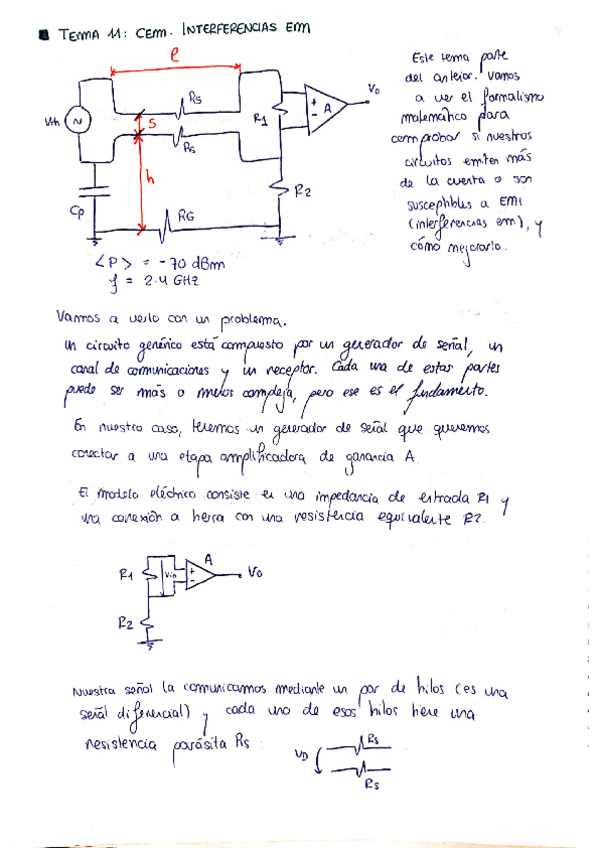 TEMA 11: CEM. INTERFERENCIAS EM
l
Rs
Vo
A
R1
Vth
s
Rs
h
R2
Cp
RG
<P> = -70 dBm
f = 2.4 GHz
Este tema parte
del anterior. Vamos
a ver el formalismo
matemático para
comprobar si nuestros
circuitos emiten más
de la cuenta o son
susceptibles a EMI
(interferencias em), y
cómo mejorarlo.
Vamos a verlo con un problema.
Un circuito genérico está compuesto por un generador de señal, un
canal de comunicaciones y un receptor. Cada una de estas partes
puede ser más o menos compleja, pero ese es el fundamento.
En nuestro caso, tenemos un generador de señal que queremos
conectar a una etapa amplificadora de ganancia A.
El modelo eléctrico consiste en una impedancia de entrada R1 y
una conexión a tierra con una resistencia equivalente R2.
A
R1
Vin
Vo
R2
Nuestra señal la comunicamos mediante un par de hilos (es una
señal diferencial) y cada uno de esos hilos tiene una
resistencia parásita Rs
VD
Rs
Rs